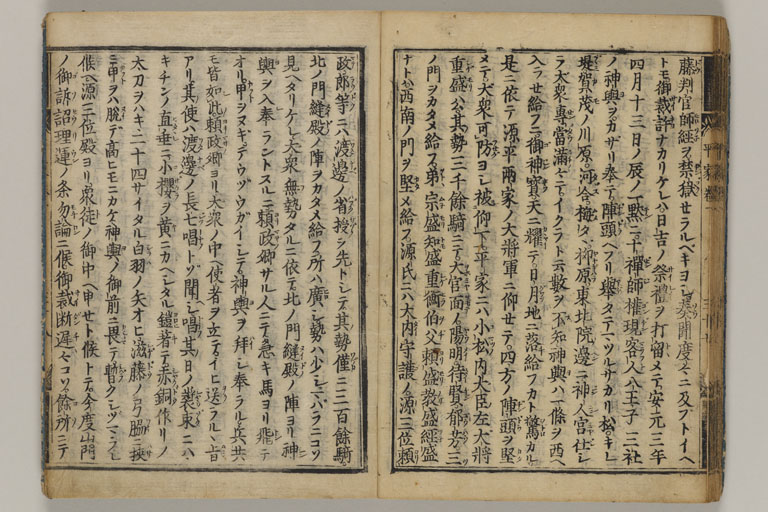 藤判官師經ヲ禁獄セラルベキヨシ奏聞度々ニ及ブトイヘ
トモ御裁許ナカリケレハ日吉ノ祭禮ヲ打留メテ安元三年
四月十三日ノ辰ノ一點ニ十禪師權現客人八王子三社
ノ神輿ヲカザリ奉テ陣頭ヘフリ擧タテマツルサカリ松キレ
堤賀茂ノ川原河合梅タヾ柳原東北院ノ邊ニ神人宮仕シ
ラ大衆專當滿々テイクラト云數ヲ不知神輿ハ一條ヲ西ヘ
入ラせ給フニ御神寳天ニ耀テ日月地ニ落給フカト驚カル
是ニ依テ源平兩家ノ大將軍ニ仰せテ四方ノ陣頭ヲ堅
メテ大衆可防ヨシ被仰下平家ニハ小松ノ内大臣左大將
重盛公其勢三千餘騎ニテ大宮面ノ陽明待賢郁芳三
ノ門ヲカタメ給フ弟宗盛知盛重衡伯父頼盛敎盛經盛
ナトハ西南ノ門ヲ堅メ給フ源氏ニハ大内守護ノ源三位頼
政郎等ニハ渡邊ノ省授ヲ先トシテ其勢僅ニ三百餘騎
北ノ門縫殿ノ陣ヲカタメ給フ所ハ廣シ勢ハ少シマバラニコソ
見ヘタリケレ大衆無勢タルニ依テ北ノ門縫殿ノ陣ヨリ神
輿ヲ入奉ラントスルニ頼政卿サル人ニテ急キ馬ヨリ飛テ
オリ甲ヲヌギテウヅウガイシテ神輿ヲ拜シ奉ラル兵共
モ皆如此頼政卿ヨリ大衆ノ中ヘ使者ヲ立テイヒ送ラルヽ旨
アリ其使ハ渡邊ノ長七唱トソ聞ヘシ唱其日ノ装束ニハ
キチンノ直垂ニ小櫻ヲ黄ニカヘシタル鎧着テ赤銅作リノ
太刀ヲハキ二十四サイタル白羽ノ矢オヒ滋藤ノ弓脇ニ挾
ミ甲ヲハ脱テ高ヒモニカケ神輿ノ御前ニ畏テ暫ク
候ヘ源三位殿ヨリ衆徒ノ御中ヘ申せト候トテ今度山門
ノ御訴詔理運ノ条勿論ニ候御裁断遅々コソ餘所ニテ
平家卷一